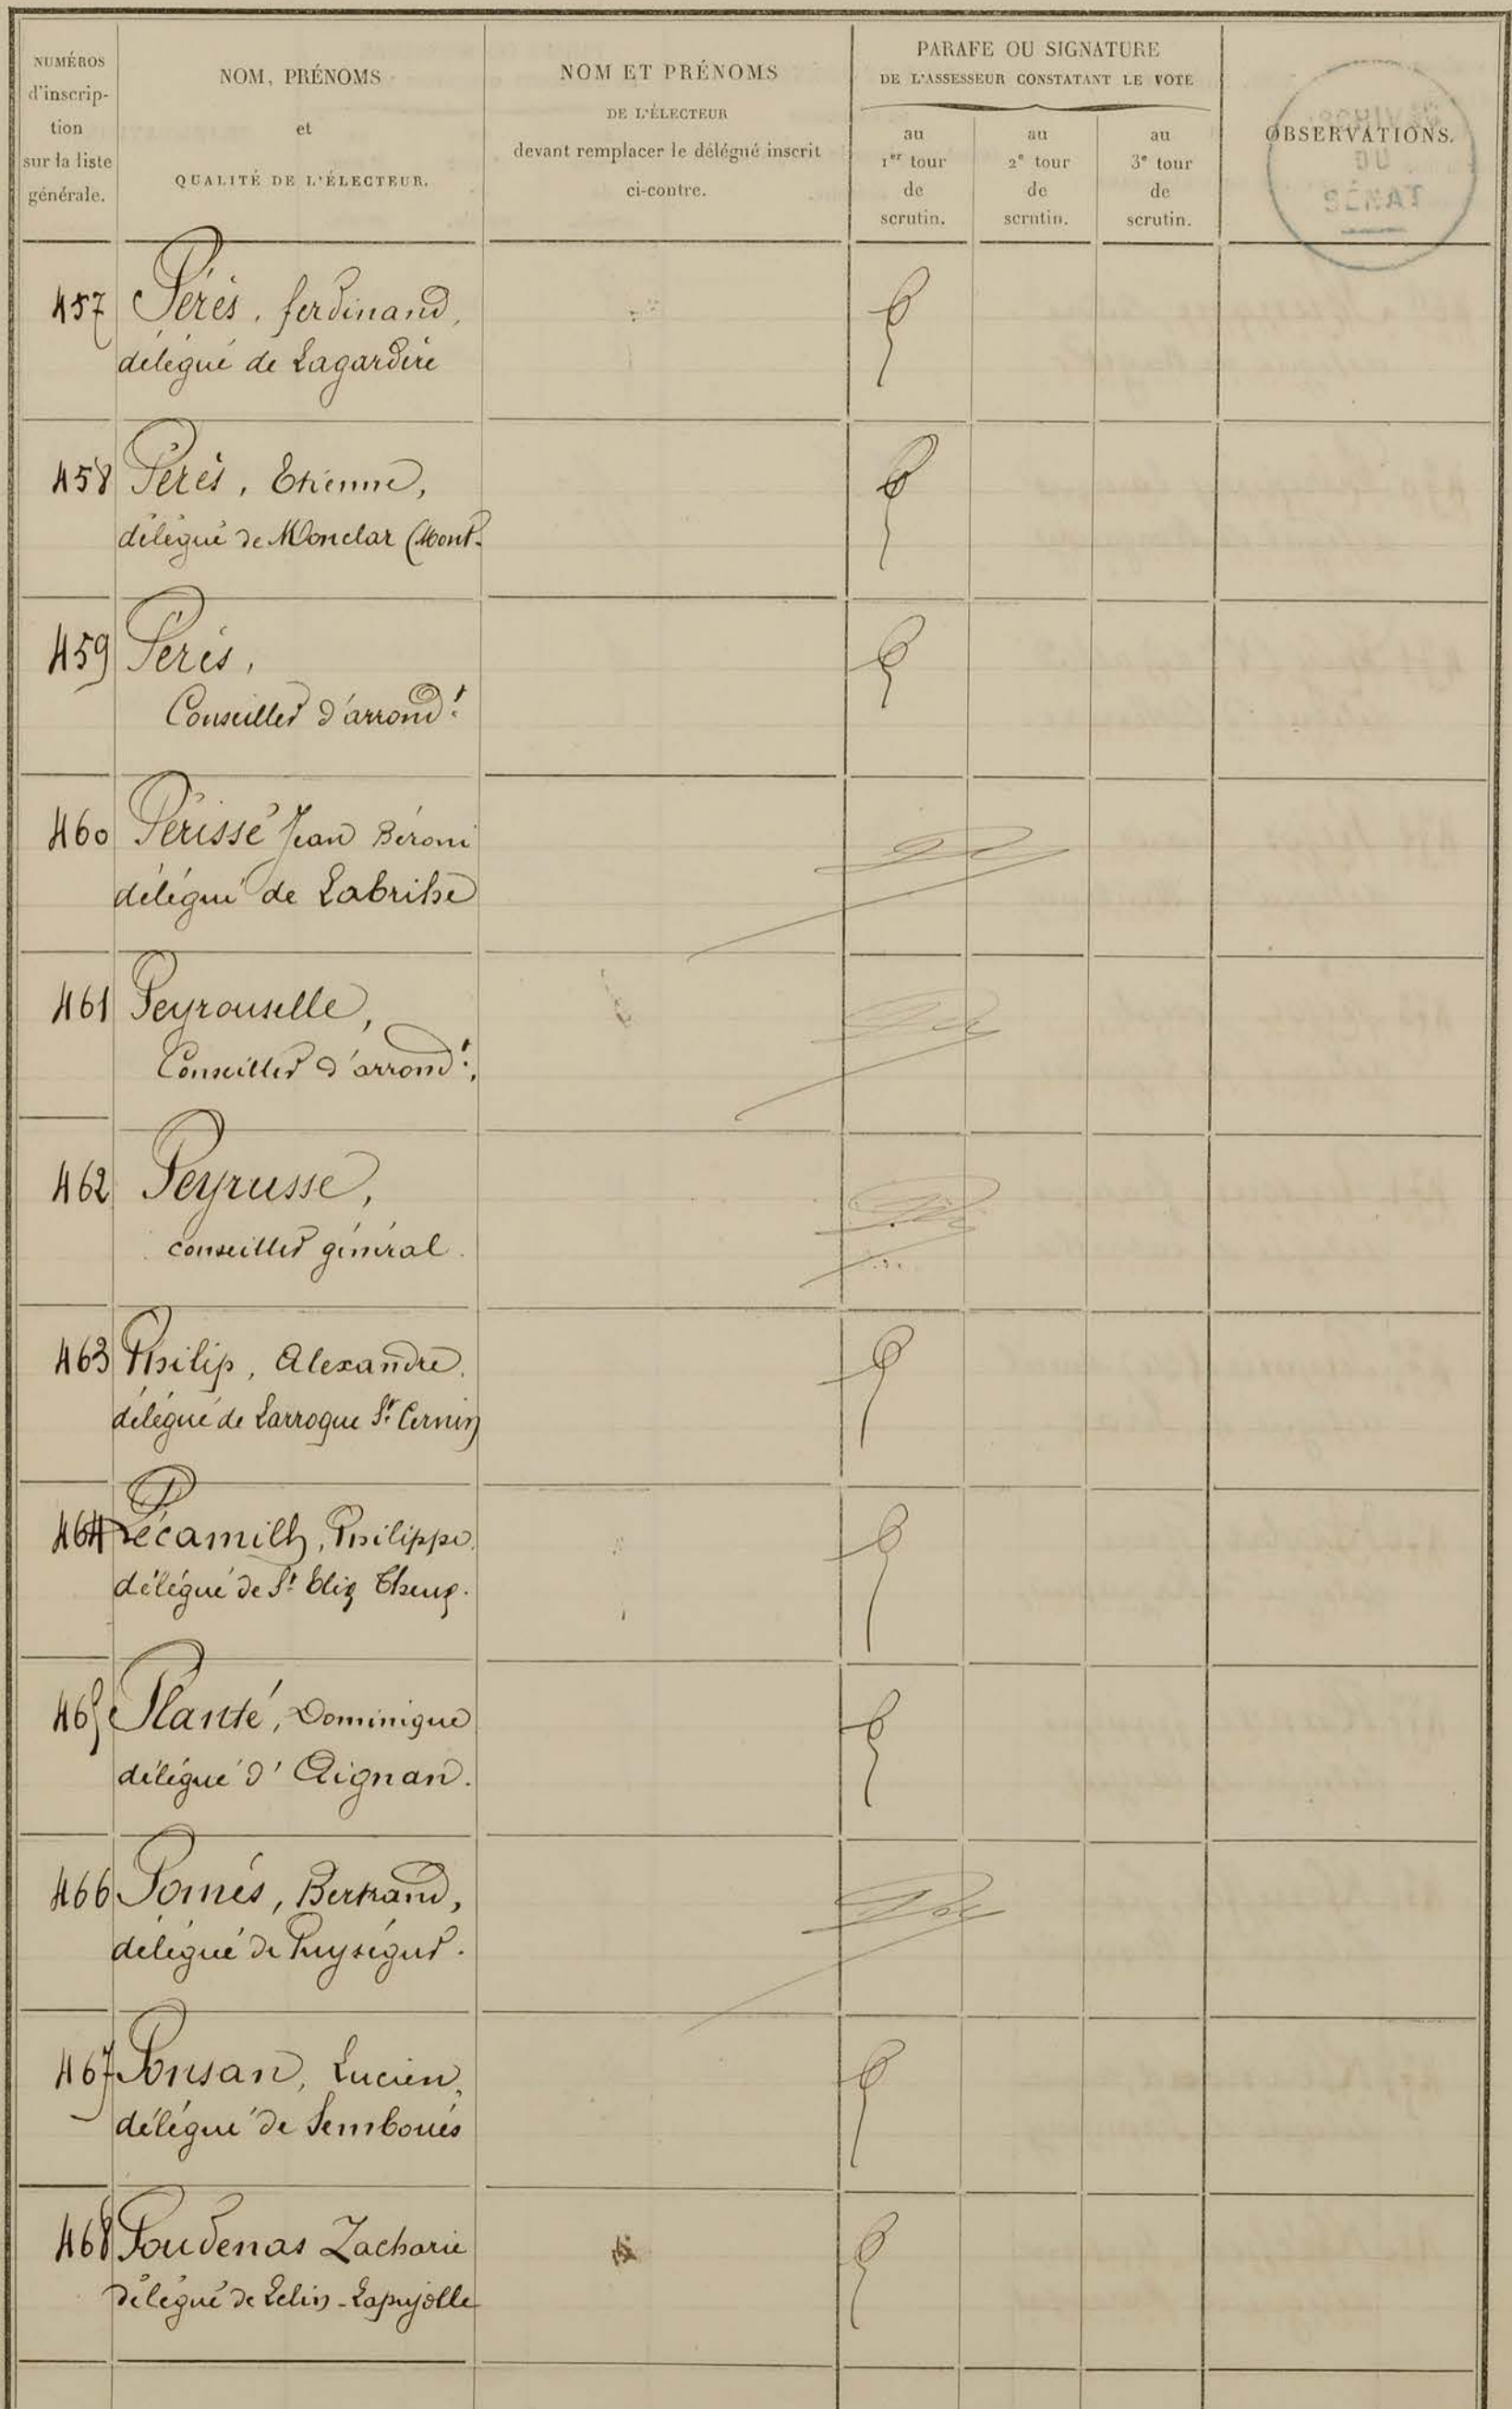 NUMÉROS
d'inscrip-
tion
sur la liste
générale.
NOM, PRÉNOMS
et
QUALITÉ DE L'ÉLECTEUR.
NOM ET PRÉNOMS
DE L'ÉLECTEUR
devant remplacer le délégué inscrit
ci-contre.
PARAFE OU SIGNATURE
DE L'ASSESSEUR CONSTATANT LE VOTE
au
1er tour
de
scrutin.
au
2e tour
de
scrutin.
au
3e tour
de
scrutin.
OBSERVATIONS.
ARCHIVES
DU
SÉNAT
457 Pérès, ferdinand,
délégué de Lagardère
458 Pérès, Etienne,
délégué de Monclar (Mont.
459 Pérès,
Conseiller d'arrondt.
460 Périssé Jean Béroni
délégué de Labrihe
461 Peyrouselle,
Conseiller d'arrondt.
462 Peyrusse,
conseiller général.
463 Philip, Alexandre.
délégué de Larroque St Cernin
464 Pécamilh, Philippe.
délégué de St Elix Theux.
465 Planté, Dominique
délégué d'Aignan.
466 Pomès, Bertrand,
délégué de Puységur.
467 Ponsan, Lucien,
délégué de Sembouès
468 Poudenas Zacharie
délégué de Lelin-Lapujolle